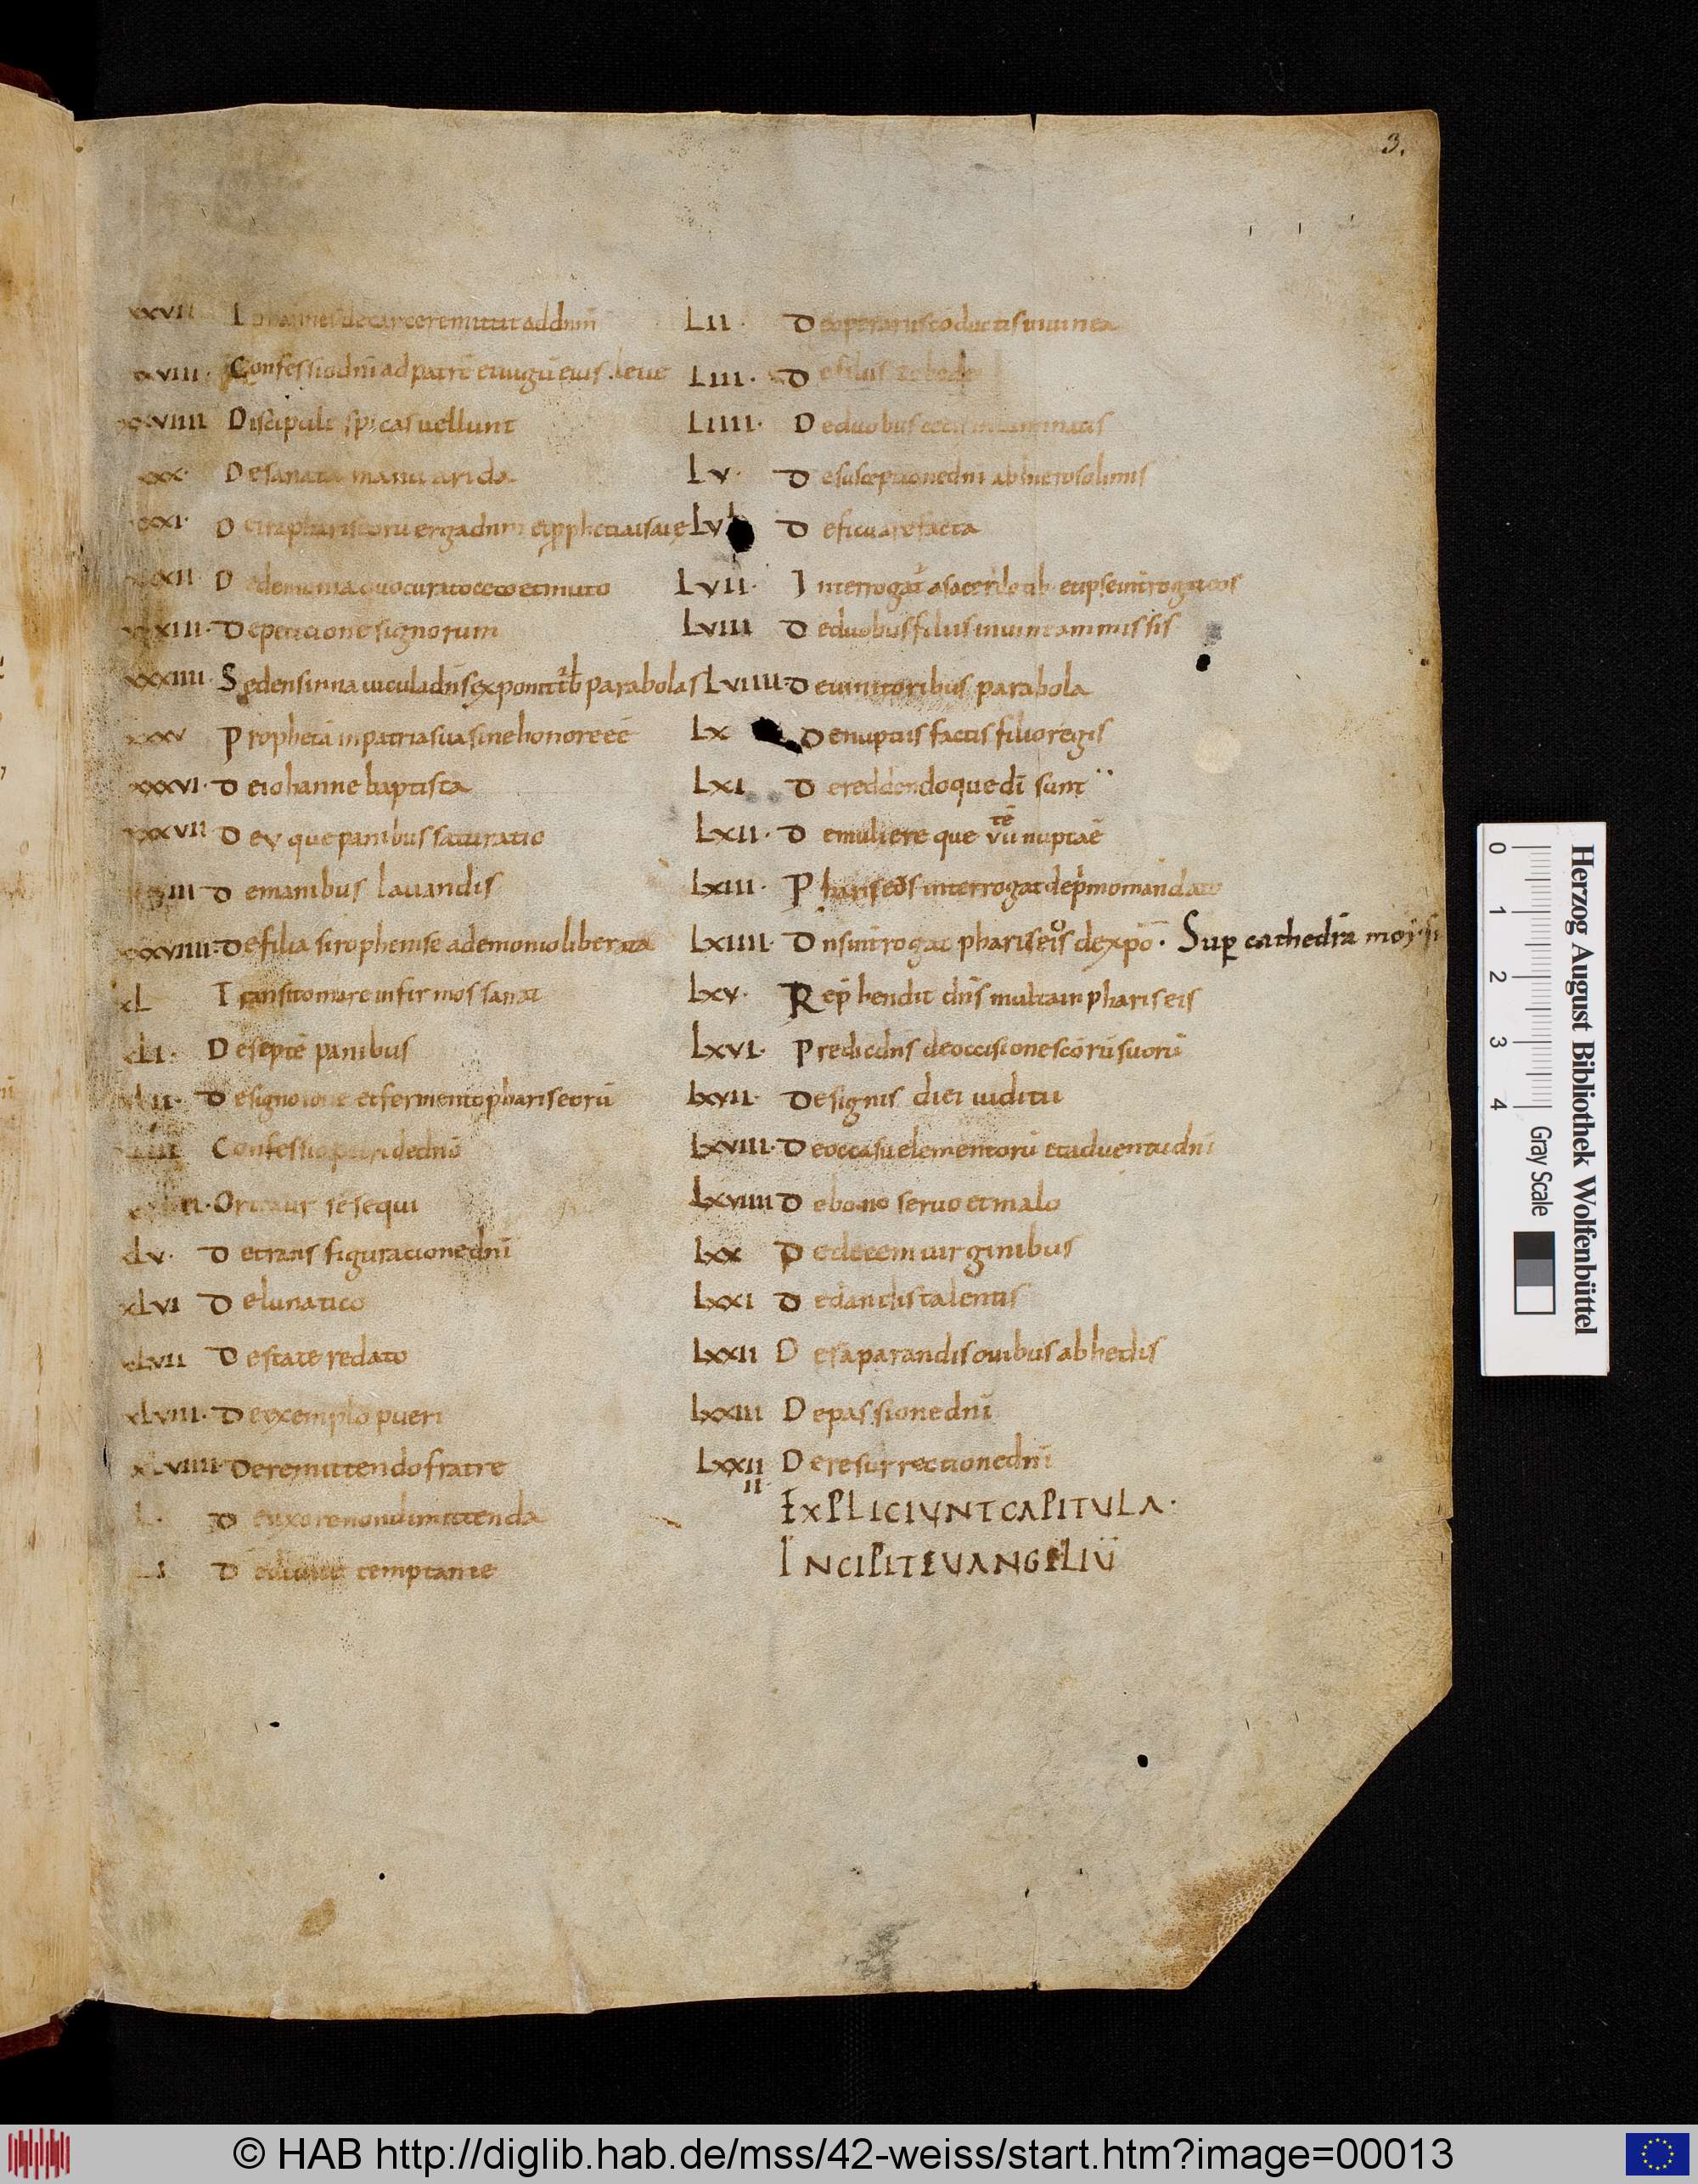 3.
XXVII Iohannes de carcere mittit ad dnm̄
XXVIII. Confessio dn̄i ad patrē et iugū eius leue
XXVIIII Discipuli spicas uellunt
XXX. De sanata manu arida
XXXI. De ira phariseoru erga dnm et pphetia isaie
XXXII. De demonia quo curato ceco et muto
XXXIII. De peticione signorum
XXXIIII. Sedens in nauicula dn̄s exponit trb̄ parabolas
XXXV Prophetā in patria sua sine honore eē
XXXVI. De iohanne baptista
XXXVII De v que panibus saturatio
XXXVIII De manibus lauandis
XXXVIIII. De filia sirophenise a demonio liberata
XL Transito mare infirmos sanat
XLI. De septē panibus
XLII. De signo ione et fermento phariseorū
XLIII Confessio petri de dnō
XLIIII. Ortatur se sequi
XLV. De transfiguracione dn̄i
XLVI De lunatico
XLVII De statere dato
XLVIII. De exemplo pueri
XLVIIII. De remittendo fratre
L. De uxore non dimittenda
LI De diuite temptante
LII. De operariis cōductis in uinea
LIII. De filiis zebede
LIIII. De duobus cecis inluminatis
LV. De susceptione dn̄i ab hierosolimis
LVI De ficu arefacta
LVII. Interrogat̄ a sacerdotib et ipse introgat eos
LVIII De duobus filiis in uineam missis
LVIIII. De uinitoribus parabola
LX De nuptiis factis filio regis
LXI De reddendo que dī sunt
LXII. De muliere que vii nuptaē
tē
LXIII. Phariseos interrogat de primo mandato
LXIIII. Dn̄s introgat phariseis de xpō. Sup cathedrā moysi
LXV. Rep̄hendit dn̄s multa in phariseis
LXVI. Predic dn̄s de occisione scōrū suorū
LXVII. De signis diei iuditii
LXVIII. De occasu elementorū et aduentu dn̄i
LXVIIII De bono seruo et malo
LXX De decem uirginibus
LXXI De dandis talentis
LXXII De saparandis ouibus ab hedis
LXXIII De passione dn̄i
LXXII De resurrectione dn̄i
II
EXPLICIUNT CAPITULA.
INCIPIT EVANGELIŪ
0 1 2 3 4
Gray Scale
Herzog August Bibliothek Wolfenbüttel
© HAB http://diglib.hab.de/mss/42-weiss/start.htm?image=00013